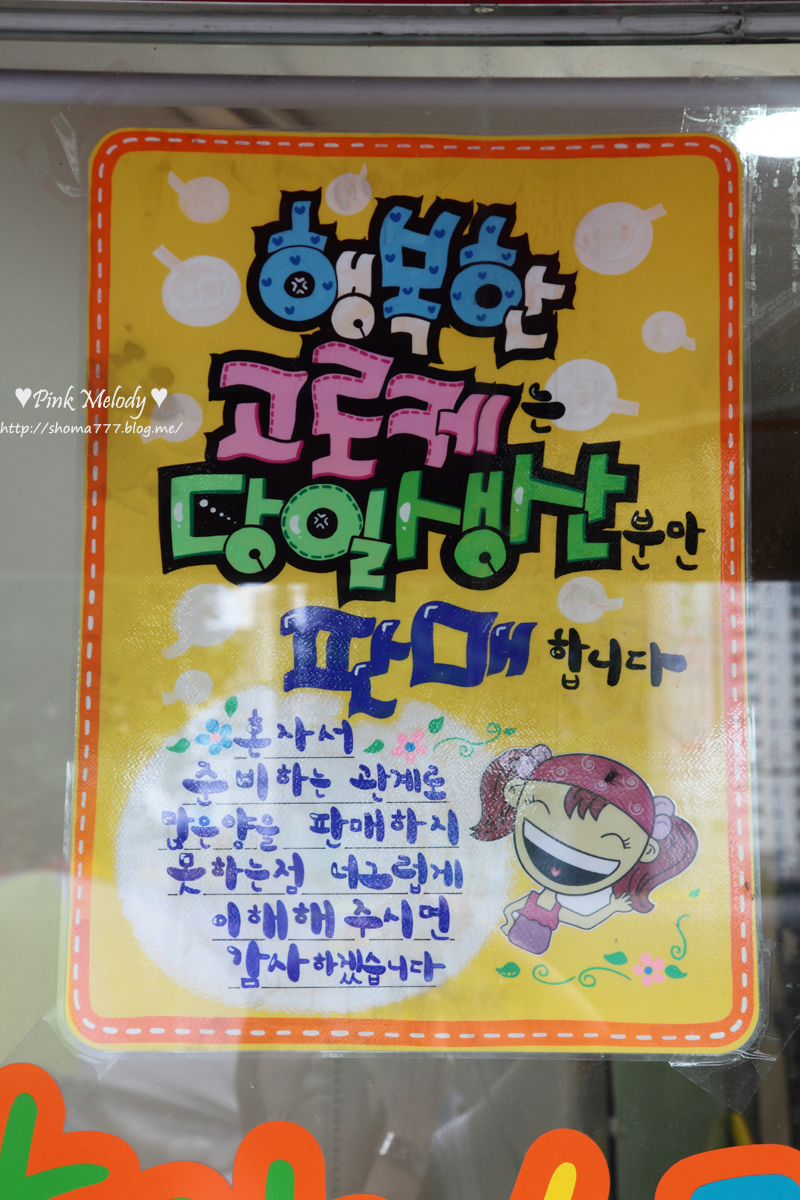 행복한
고로케는
당일생산분만
판매합니다
♥Pink Melody♥
http://shoma777.blog.me/
혼자서
준비하는 관계로
많은양을 판매하지
못하는점 너그럽게
이해해주시면
감사하겠습니다